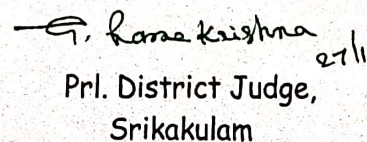 G. Rama Krishna
27/1
Prl. District Judge,
Srikakulam